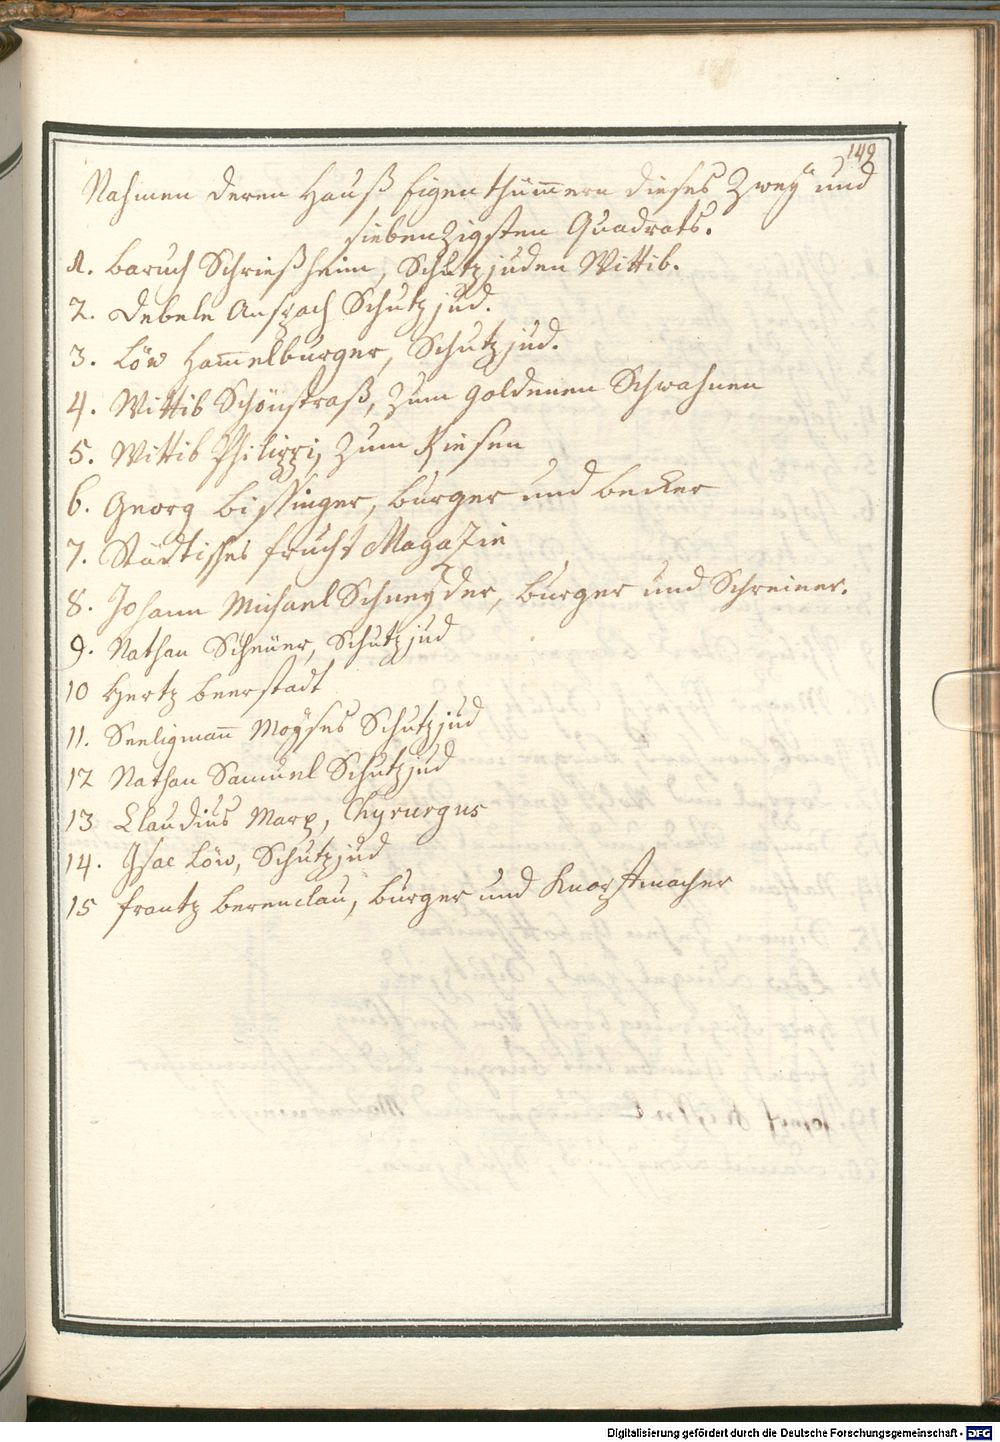 149
Nahmen deren Hauß Eigenthümern dieses Zwey und
siebenzigsten Quadrats.
1. Baruch Schrießheim, Schutzjuden Wittib.
2. Debele Anspach Schutzjud.
3. Löw Ham̄elburger, Schutzjud.
4. Wittib Schönstraß, zum goldenen Schwahnen
5. Wittib Philippi, zum Riesen
6. Georg Bissinger, burger und becker
7. Städtisches frucht Magazin
8. Johann Michael Schneyder, burger und Schreiner.
9. Nathan Scheüer, Schutzjud
10 Hertz beerstadt
11. Seeligman̄ Moyses Schutzjud
12 Nathan Samuel Schutzjud
13 Claudius Marx, Chyrurgus
14. Isac Löw, Schutzjud
15 frantz berenclau, burger und
Digitalisierung gefördert durch die Deutsche Forschungsgemeinschaft - DFG